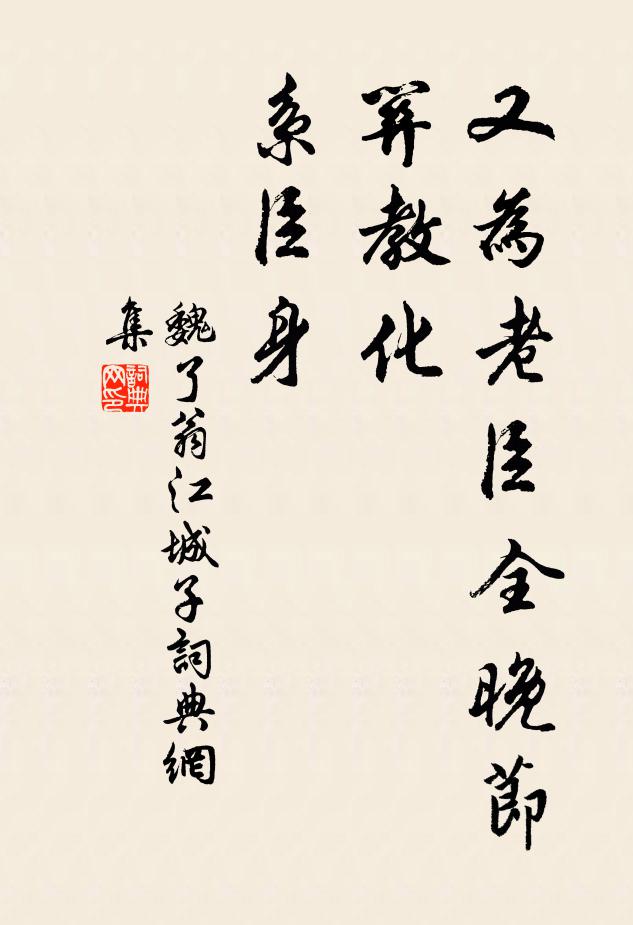 又為老臣全晚節
筭教化
系臣身
魏了翁江城子詞典網
集
詞典
网印